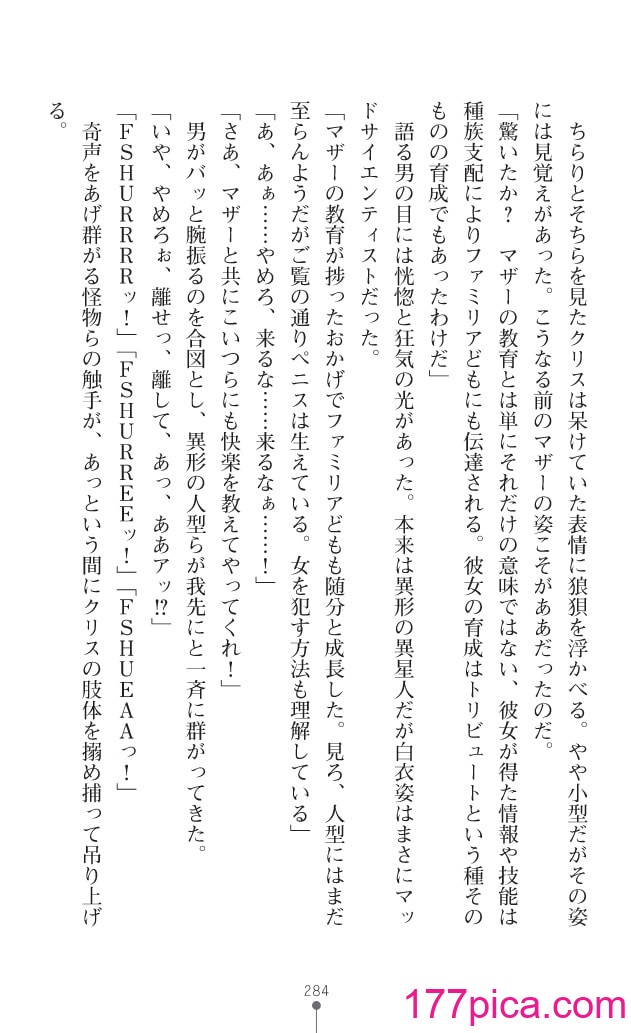 ちらりとそちらを見たクリスは呆けていた表情に狼狽を浮かべる。やや小型だがその姿
には見覚えがあった。こうなる前のマザーの姿こそがああだったのだ。
「驚いたか？　マザーの教育とは単にそれだけの意味ではない、彼女が得た情報や技能は
種族支配によりファミリアどもにも伝達される。彼女の育成はトリビュートという種その
ものの育成でもあったわけだ」
語る男の目には恍惚と狂気の光があった。本来は異形の異星人だが白衣姿はまさにマッ
ドサイエンティストだった。
「マザーの教育が捗ったおかげでファミリアどもも随分と成長した。見ろ、人型にはまだ
至らんようだがご覧の通りペニスは生えている。女を犯す方法も理解している」
「あ、あぁ……やめろ、来るな……来るなぁ……！」
「さあ、マザーと共にこいつらにも快楽を教えてやってくれ！」
男がバッと腕振るのを合図とし、異形の人型らが我先にと一斉に群がってきた。
「いや、やめろぉ、離せっ、離して、あっ、ああアッ!?」
「ＦＳＨＵＲＲＲＲッ！」「ＦＳＨＵＲＲＥＥッ！」「ＦＳＨＵＥＡＡっ！」
奇声をあげ群がる怪物らの触手が、あっという間にクリスの肢体を搦め捕って吊り上げ
る。
284
177pica.com